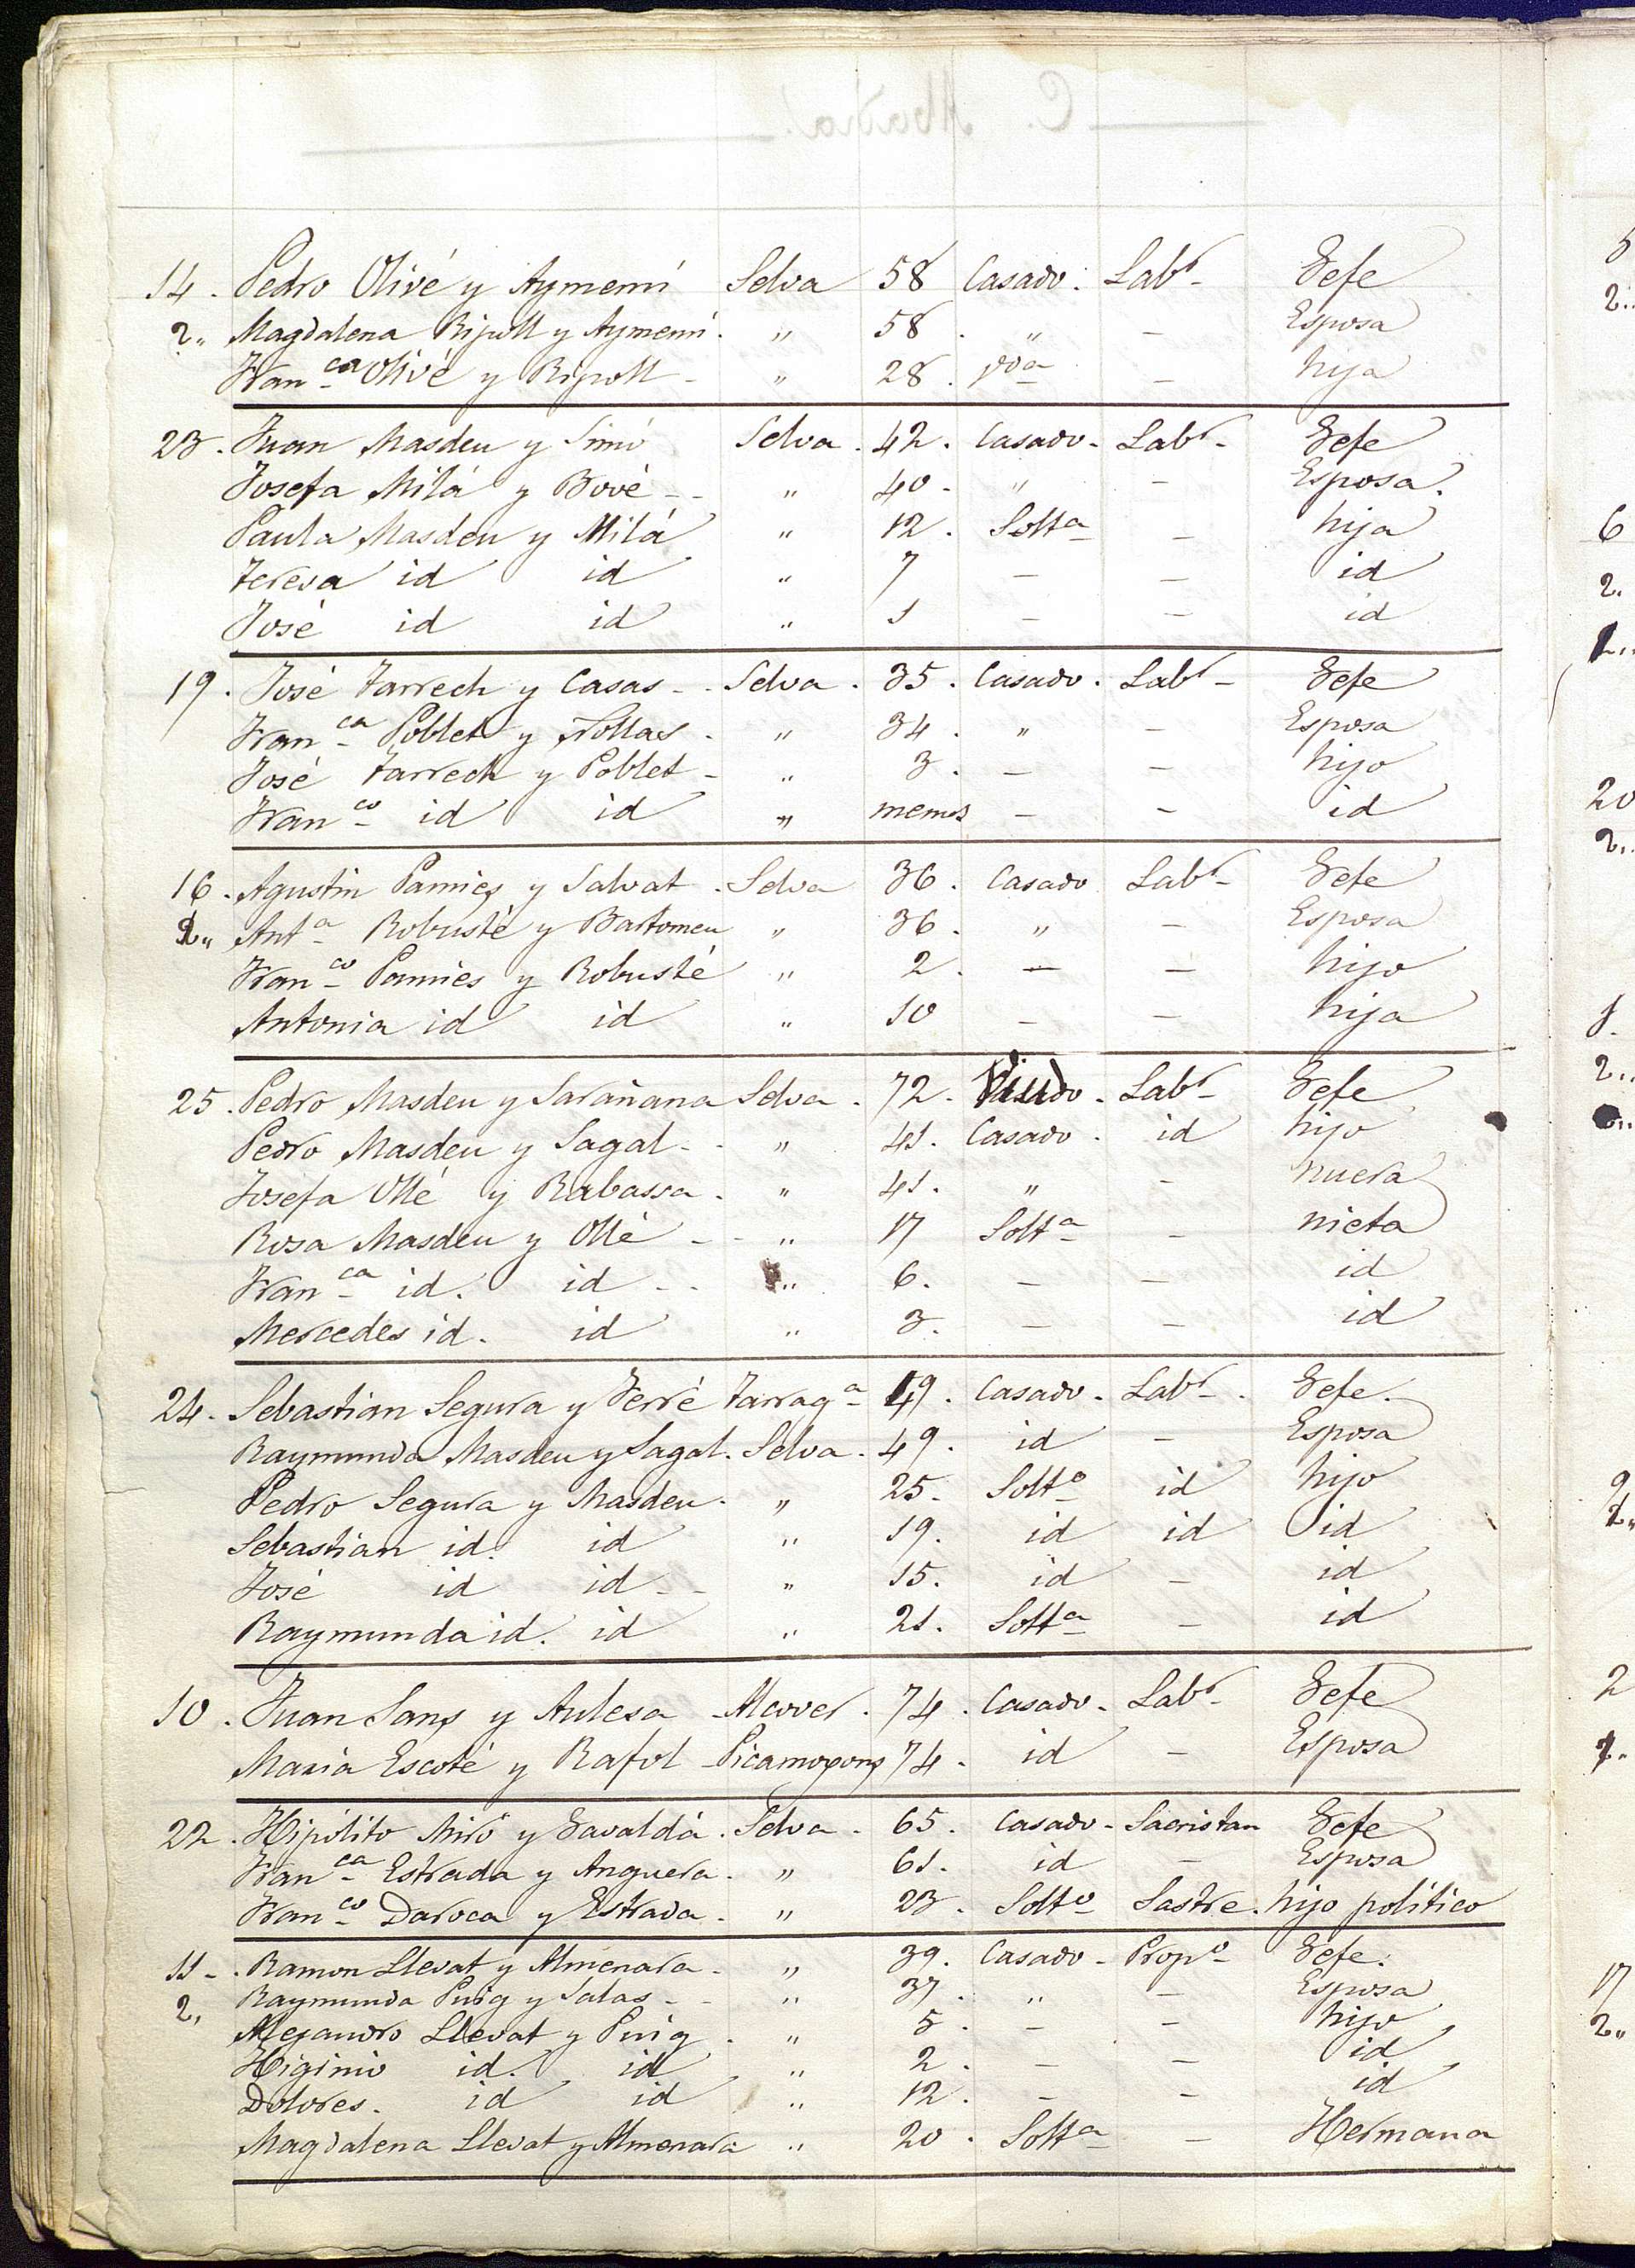 14. Pedro Olivé y Aymemí Selva 58 Casado. Labr- Gefe
2,, Magdalena Ripoll y Aymemí. ,, 58. ,, - Esposa
Franca Olivé y Ripoll - ,, 28. Vda - hija
23. Juan Masdeu y Simó Selva. 42. Casado- Labr- Gefe
Josefa Milá y Bové - - ,, 40- ,, - Esposa.
Paula Masdeu y Milá ,, 12. Solta - hija
Teresa id id ,, 7 - - id
José id id ,, 1 - - id
19. José Tarrech y Casas - . Selva. 35. Casado. Labr- Gefe
Franca Poblet y Follas. ,, 34. ,, - Esposa
José Tarrech y Poblet - ,, 3. - - hijo
Franco id id ,, menos - - id
16. Agustin Pamies y Salvat. Selva 36. Casado Labr- Gefe
2,, Anta Robusté y Bartomeu ,, 36. ,, - Esposa
Franco Pamies y Robusté ,, 2. - - hijo
Antonia id id ,, 10 - - hija
25. Pedro Masdeu y Sarañana Selva. 72. Viudo. Labr- Gefe
Pedro Masdeu y Sagal - . ,, 41. Casado. id hijo
Josefa Ollé y Rabassa. ,, 41. ,, - nuera
Rosa Masdeu y Ollé - - ,, 17 Solta - nieta
Franca id. id - . ,, 6. - - id
Mercedes id. id ,, 3. - - id
24. Sebastian Segura y Ferré Tarraga 49. Casado. Labr-. Gefe.
Raymunda Masdeu y Sagal. Selva. 49. id - Esposa
Pedro Segura y Masdeu. ,, 25. Solto id hijo
Sebastian id. id ,, 19. id id id
José id id - - ,, 15. id - id
Raymunda id. id ,, 21. Solta - id
10. Juan Sans y Aulesa - Alcover. 74. Casado- Labr- Gefe
Maria Escoté y Rafol - Picamoxons 74. id - Esposa
22. Hipólito Miró y Gavaldá. Selva. 65. Casado- Sacristan Gefe
Franca Estrada y Anguera. ,, 61. id - Esposa
Franco Daroca y Estrada. ,, 23. Solto Sastre. hijo político
11-. Ramon Llevat y Almenara. ,, 39. Casado- Propo- Gefe.
2, Raymunda Puig y Salas - - ,, 37. ,, - Esposa
Alejandro Llevat y Puig. ,, 5. - - hijo
Higinio id. id ,, 2. - - id
Dolores. id id ,, 12. - - id
Magdalena Llevat y Almenara ,, 20. Solta - Hermana